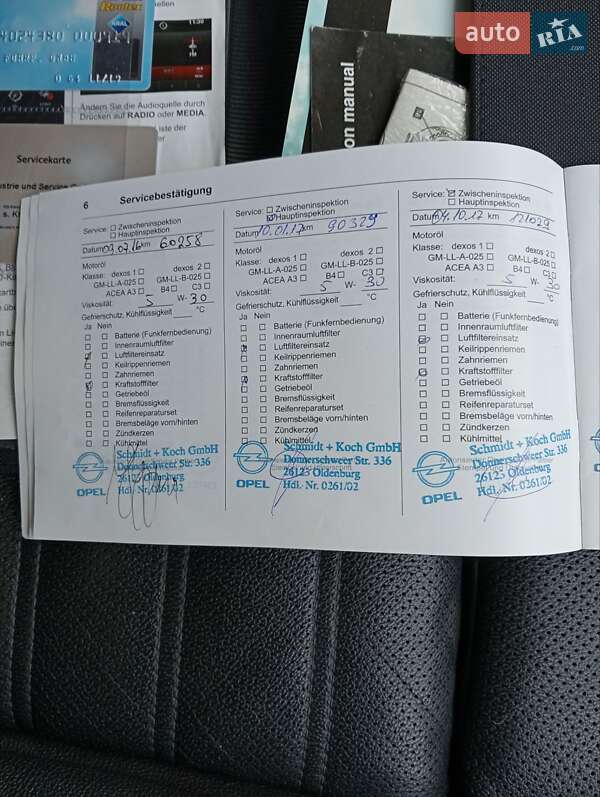 Routex
ARAL
4024380 000424
11:30
auto RIA
.com
ion manual
Ändern Sie die Audioquelle durch
Drücken auf RADIO oder MEDIA.
Servicekarte
6 Servicebestätigung
Service: Zwischeninspektion
Hauptinspektion
Datum 07.07.16 km 60258
Motoröl
Klasse: dexos 1 dexos 2
GM-LL-A-025 GM-LL-B-025
ACEA A3 B4 C3
Viskosität: 5 W- 30
Gefrierschutz, Kühlflüssigkeit °C
Ja Nein
Batterie (Funkfernbedienung)
Innenraumluftfilter
Luftfiltereinsatz
Keilrippenriemen
Zahnriemen
Kraftstofffilter
Getriebeöl
Bremsflüssigkeit
Reifenreparaturset
Bremsbeläge vorn/hinten
Zündkerzen
Kühlmittel
OPEL
Schmidt + Koch GmbH
Donnerschweer Str. 336
26123 Oldenburg
Hdl.-Nr. 0261/02
Service: Zwischeninspektion
Hauptinspektion
Datum 10.01.17 km 90329
Motoröl
Klasse: dexos 1 dexos 2
GM-LL-A-025 GM-LL-B-025
ACEA A3 B4 C3
Viskosität: 5 W- 30
Gefrierschutz, Kühlflüssigkeit °C
Ja Nein
Batterie (Funkfernbedienung)
Innenraumluftfilter
Luftfiltereinsatz
Keilrippenriemen
Zahnriemen
Kraftstofffilter
Getriebeöl
Bremsflüssigkeit
Reifenreparaturset
Bremsbeläge vorn/hinten
Zündkerzen
Kühlmittel
OPEL
Schmidt + Koch GmbH
Donnerschweer Str. 336
26123 Oldenburg
Hdl.-Nr. 0261/02
Service: Zwischeninspektion
Hauptinspektion
Datum 04.10.17 km 121029
Motoröl
Klasse: dexos 1 dexos 2
GM-LL-A-025 GM-LL-B-025
ACEA A3 B4 C3
Viskosität: 5 W- 30
Gefrierschutz, Kühlflüssigkeit °C
Ja Nein
Batterie (Funkfernbedienung)
Innenraumluftfilter
Luftfiltereinsatz
Keilrippenriemen
Zahnriemen
Kraftstofffilter
Getriebeöl
Bremsflüssigkeit
Reifenreparaturset
Bremsbeläge vorn/hinten
Zündkerzen
Kühlmittel
OPEL
Schmidt + Koch GmbH
Donnerschweer Str. 336
26123 Oldenburg
Hdl.-Nr. 0261/02